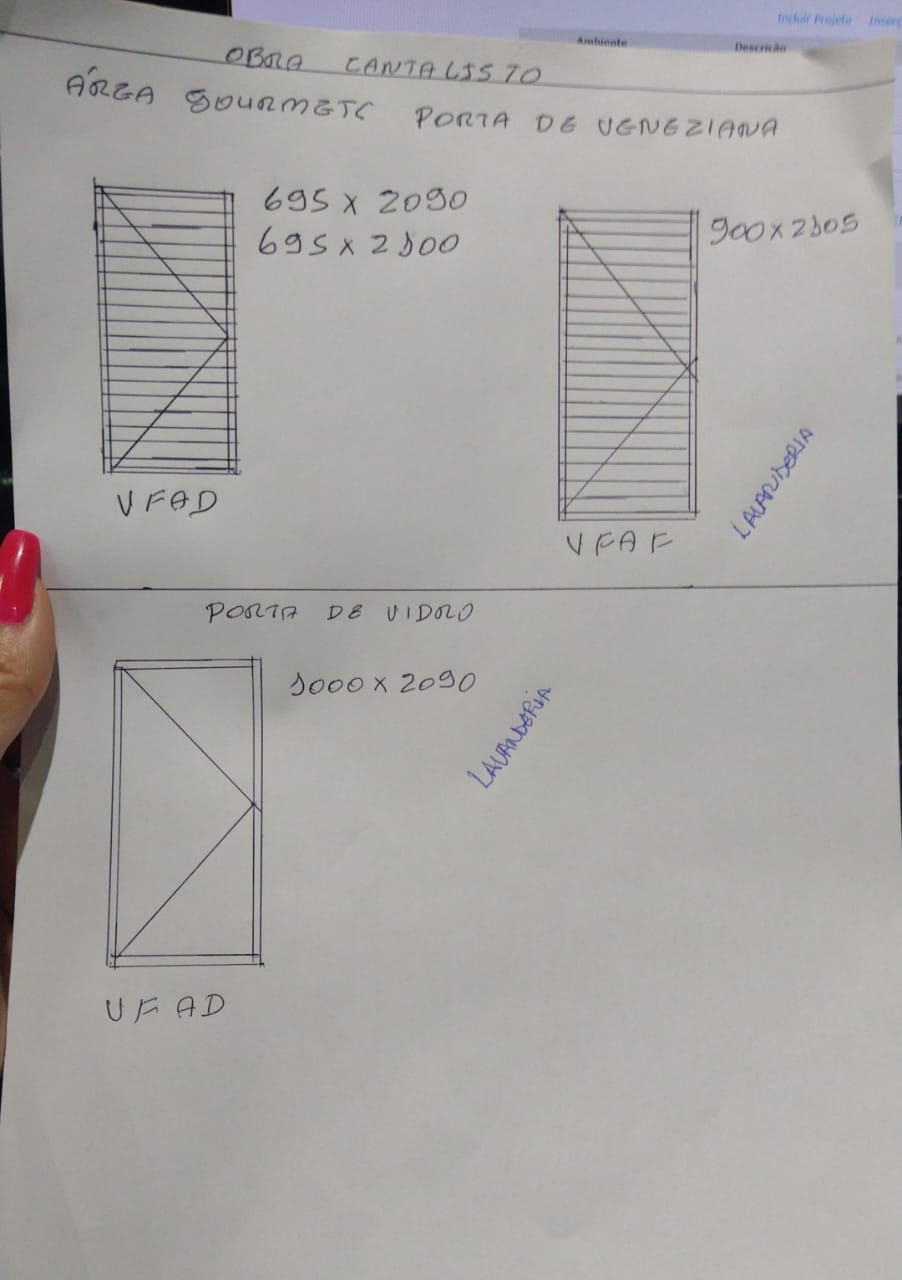 Incluir Projeto
Ambiente
Descrição
OBRA CANTALISTO
ÁREA GOURMETC PORTA DE VENEZIANA
695 x 2090
695 x 2100
900 x 2105
VFAD
VFAF
LAVANDERIA
PORTA DE VIDRO
1000 x 2090
LAVANDERIA
VFAD